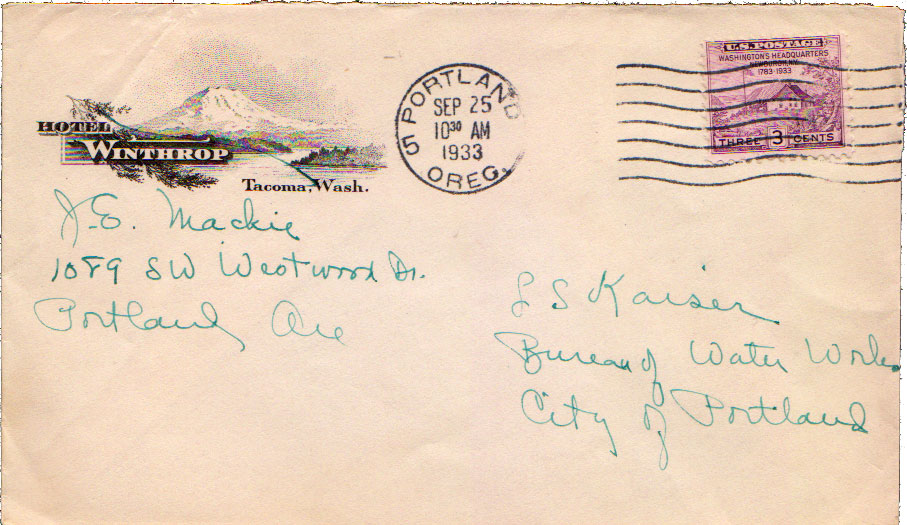 HOTEL
WINTHROP
Tacoma, Wash.
PORTLAND
SEP 25
10³⁰ AM
1933
5
OREG.
U.S. POSTAGE
WASHINGTON'S HEADQUARTERS
NEWBURGH, N.Y.
1783-1933
THREE 3 CENTS
J.E. Mackie
1089 SW Westwood Dr.
Portland, Ore
L S Kaiser
Bureau of Water Works
City of Portland